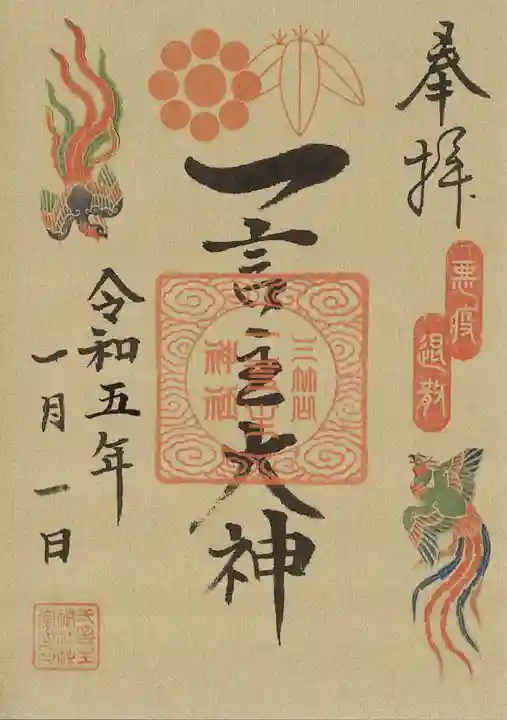 奉拝
悪疫
退散
一言主大神
三竈
一言主
神社
令和五年
一月一日